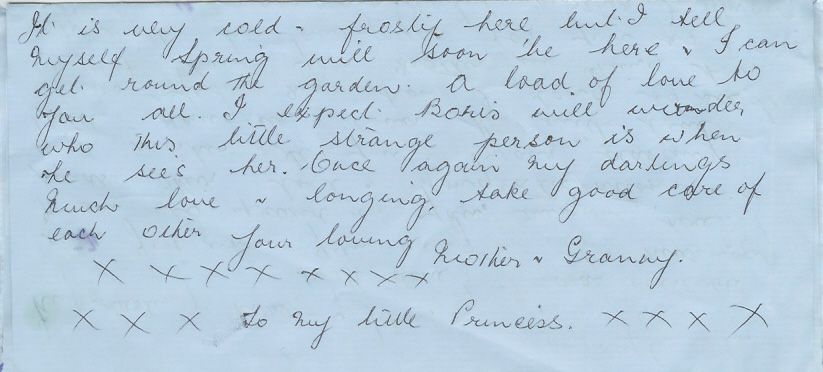 It is very cold - frosty here but I tell
myself Spring will soon be here & I can
get round the garden. A load of love to
you all. I expect Boris will wonder
who this little strange person is when
he see's her. Once again my darlings
much love & longing, take good care of
each other your loving Mother & Granny.
X X X X X X X X
X X X to my little Princess. X X X X